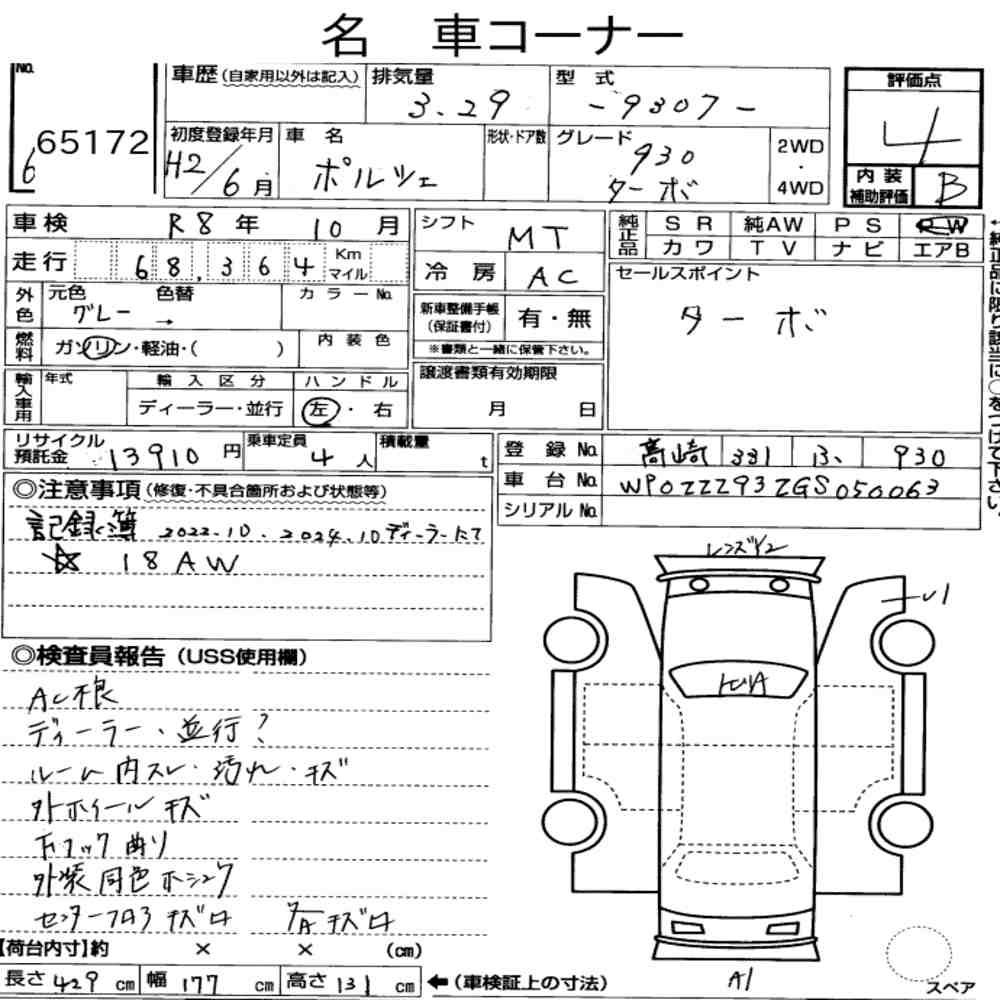 名 車コーナー
No. 65172
6
車歴(自家用以外は記入) 排気量 3.29 型式 -9307- 評価点 4
初度登録年月 H2/6月 車名 ポルシェ 形状・ドア数 グレード 930 ターボ 2WD・4WD
内装補助評価 B
車検 R8年 10月 シフト MT 純正品 SR 純AW PS RW
カワ TV ナビ エアB
走行 68,364 Km マイル 冷房 AC セールスポイント
ターボ
外色 元色 グレー 色替 → カラーNo. 新車整備手帳(保証書付) 有・無
※書類と一緒に保管下さい。
燃料 ガソリン・軽油・( ) 内装色
輸入車用 年式 輸入区分 ディーラー・並行 ハンドル 左・右 譲渡書類有効期限 月 日
リサイクル預託金 13910円 乗車定員 4人 積載量 t 登録No. 高崎 331 ひ 930
車台No. WP0ZZZ93ZGS050063
シリアルNo.
◎注意事項(修復・不具合箇所および状態等)
記録簿 2022.10. 2024.10ディーラーにて
☆ 18AW
◎検査員報告(USS使用欄)
AC不良
ディーラー・並行?
ルーム内スレ・汚れ・キズ
外ホイールキズ
下コック曲り
外装同色ホシュウ
センターフロア キズロ
キズロ
レンズY2
U1
A1
スペア
【荷台内寸】約 × × (cm)
長さ429cm 幅177cm 高さ131cm ←(車検証上の寸法)
←純正品に限り該当に○をつけて下さい。